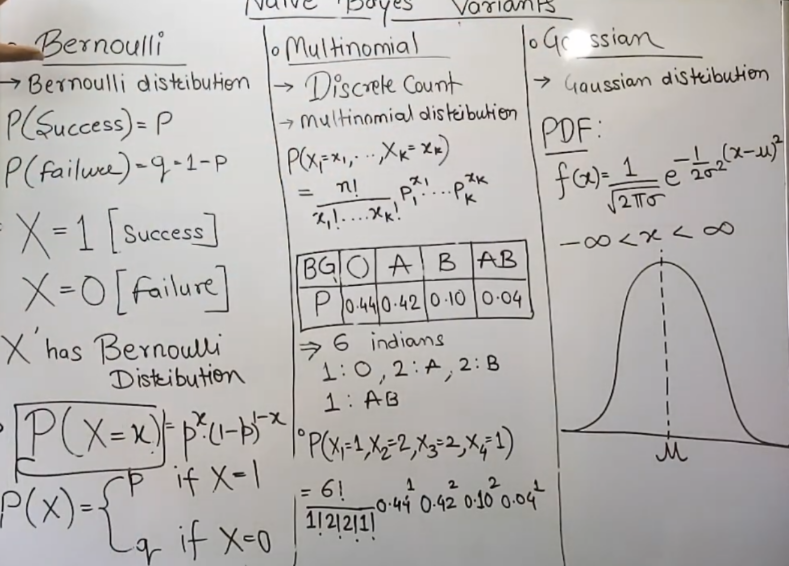 Naive Bayes Variants
Bernoulli
→ Bernoulli distribution
P(Success) = P
P(failure) = q = 1-p
X = 1 [Success]
X = 0 [failure]
X has Bernoulli
Distribution
P(X=x) = p^x.(1-p)^1-x
P(X) = { p if X=1
q if X=0
o Multinomial
→ Discrete Count
→ multinomial distribution
P(X₁=x₁, ..., X_K=x_K)
= n! / x₁!....x_K! P₁^x₁.... P_K^x_K
BG O A B AB
P 0.44 0.42 0.10 0.04
⇒ 6 indians
1:O, 2:A, 2:B
1:AB
° P(X₁=1, X₂=2, X₃=2, X₄=1)
= 6! / 1!2!2!1! 0.44^1 0.42^2 0.10^2 0.04^1
o G ssian
→ Gaussian distribution
PDF:
f(x) = 1/√2πσ e^-1/2σ²(x-μ)²
-∞ < x < ∞
μ